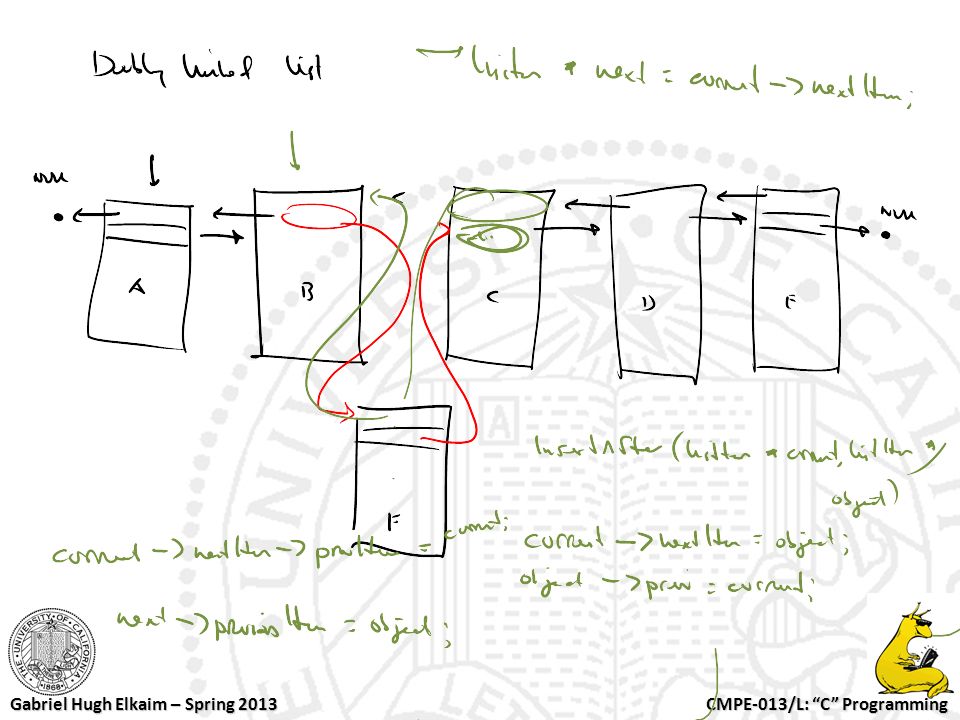 Doubly linked list
ListItem * next = current -> nextItem;
NULL
NULL
A
B
C
D
E
F
InsertAfter (ListItem * current, ListItem *
object)
current -> nextItem -> prevItem = current;
current -> nextItem = object;
object -> prev = current;
next -> previousItem = object;
THE UNIVERSITY OF CALIFORNIA
1868
Gabriel Hugh Elkaim – Spring 2013
CMPE-013/L: “C” Programming